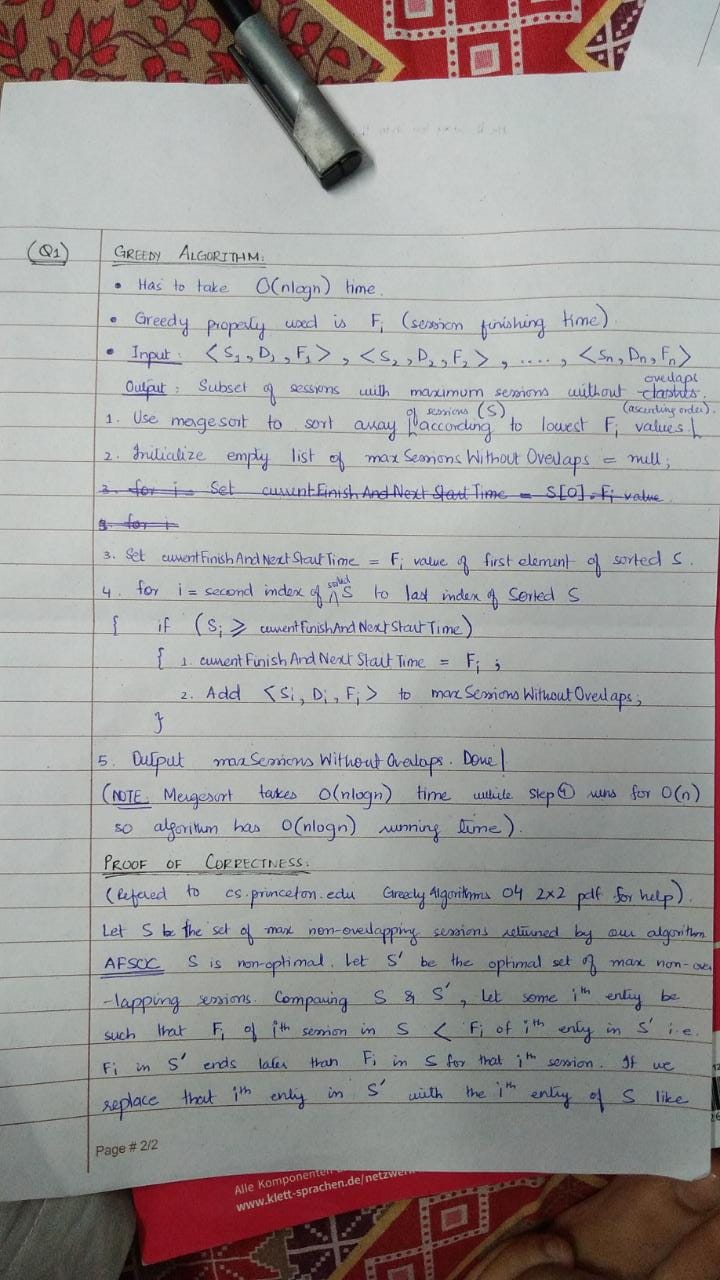 (Q1) GREEDY ALGORITHM:
• Has to take O(nlogn) time.
• Greedy property used is Fi (session finishing time)
• Input: <S1, D1, F1>, <S2, D2, F2>, ...., <Sn, Dn, Fn>
Output: Subset of sessions with maximum sessions without overlaps.
1. Use mergesort to sort array of sessions (S) according to lowest Fi values (ascending order).
2. Initialize empty list of maxSessionsWithoutOverlaps = null;
3. for i = Set currentFinishAndNextStartTime = S[0].Fi value
3. for i
3. Set currentFinishAndNextStartTime = Fi value of first element of sorted S.
4. for i = second index of sorted S to last index of Sorted S
{ if (Si ≥ currentFinishAndNextStartTime)
{ 1. currentFinishAndNextStartTime = Fi ;
2. Add <Si, Di, Fi> to maxSessionsWithoutOverlaps;
}
5. Output maxSessionsWithoutOverlaps. Done!
(NOTE: Mergesort takes O(nlogn) time while step ④ runs for O(n)
so algorithm has O(nlogn) running time).
PROOF OF CORRECTNESS:
(Refered to cs.princeton.edu Greedy Algorithms 04 2x2 pdf for help).
Let S be the set of max non-overlapping sessions returned by our algorithm
AFSOC S is non-optimal. Let S' be the optimal set of max non-over
-lapping sessions. Comparing S & S', Let some ith entry be
such that Fi of ith session in S < Fi of ith entry in S' i.e.
Fi in S' ends later than Fi in S for that ith session. If we
replace that ith entry in S' with the ith entry of S like
Page # 2/2
Alle Komponenten
www.klett-sprachen.de/netzwer